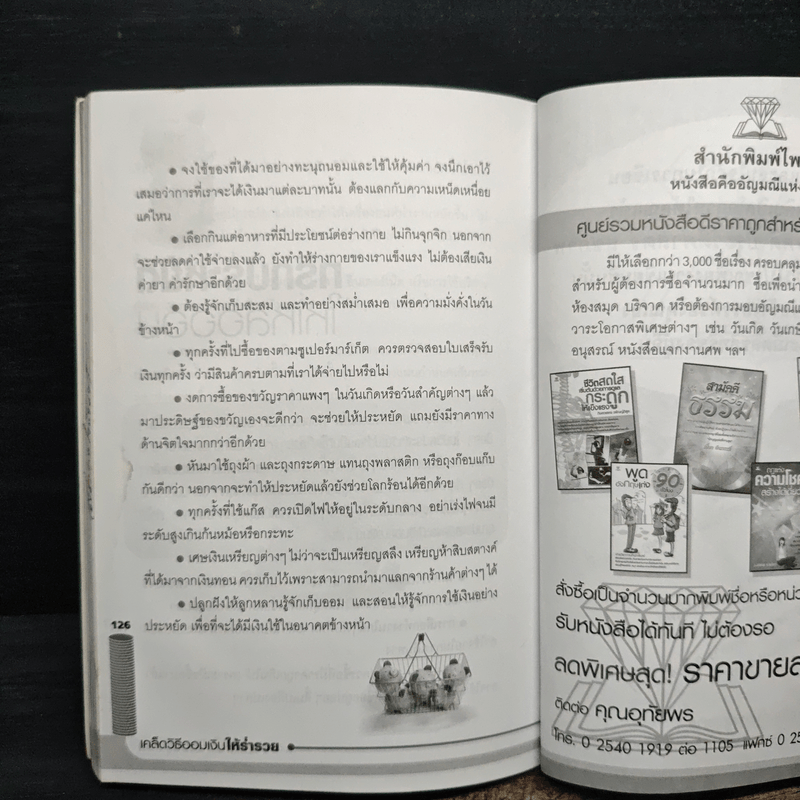 ● จงใช้ของที่ได้มาอย่างทะนุถนอมและใช้ให้คุ้มค่า จงนึกเอาไว้
เสมอว่าการที่เราจะได้เงินมาแต่ละบาทนั้น ต้องแลกกับความเหน็ดเหนื่อย
แค่ไหน
● เลือกกินแต่อาหารที่มีประโยชน์ต่อร่างกาย ไม่กินจุกจิก นอกจาก
จะช่วยลดค่าใช้จ่ายลงแล้ว ยังทำให้ร่างกายของเราแข็งแรง ไม่ต้องเสียเงิน
ค่ายา ค่ารักษาอีกด้วย
● ต้องรู้จักเก็บสะสม และทำอย่างสม่ำเสมอ เพื่อความมั่งคั่งในวัน
ข้างหน้า
● ทุกครั้งที่ไปซื้อของตามซูเปอร์มาร์เก็ต ควรตรวจสอบใบเสร็จรับ
เงินทุกครั้ง ว่ามีสินค้าครบตามที่เราได้จ่ายไปหรือไม่
● งดการซื้อของขวัญราคาแพงๆ ในวันเกิดหรือวันสำคัญต่างๆ แล้ว
มาประดิษฐ์ของขวัญเองจะดีกว่า จะช่วยให้ประหยัด แถมยังมีราคาทาง
ด้านจิตใจมากกว่าอีกด้วย
● หันมาใช้ถุงผ้า และถุงกระดาษ แทนถุงพลาสติก หรือถุงก๊อบแก๊บ
กันดีกว่า นอกจากจะทำให้ประหยัดแล้วยังช่วยโลกร้อนได้อีกด้วย
● ทุกครั้งที่ใช้แก๊ส ควรเปิดไฟให้อยู่ในระดับกลาง อย่าเร่งไฟจนมี
ระดับสูงเกินก้นหม้อหรือกระทะ
● เศษเงินเหรียญต่างๆ ไม่ว่าจะเป็นเหรียญสลึง เหรียญห้าสิบสตางค์
ที่ได้มาจากเงินทอน ควรเก็บไว้เพราะสามารถนำมาแลกจากร้านค้าต่างๆ ได้
● ปลูกฝังให้ลูกหลานรู้จักเก็บออม และสอนให้รู้จักการใช้เงินอย่าง
ประหยัด เพื่อที่จะได้มีเงินใช้ในอนาคตข้างหน้า
126
เคล็ดวิธีออมเงินให้ร่ำรวย
สำนักพิมพ์ไพ
หนังสือคืออัญมณีแห่ง
ศูนย์รวมหนังสือดีราคาถูกสำหรั
มีให้เลือกกว่า 3,000 ชื่อเรื่อง ครอบคลุม
สำหรับผู้ต้องการซื้อจำนวนมาก ซื้อเพื่อนำ
ห้องสมุด บริจาค หรือต้องการมอบอัญมณีแ
วาระโอกาสพิเศษต่างๆ เช่น วันเกิด วันเกษี
อนุสรณ์ หนังสือแจกงานศพ ฯลฯ
ชีวิตสดใส
กระดูก
ให้แข็งแรง
สามัคคี
ธรรม
พูด
90
ความโชค
สั่งซื้อเป็นจำนวนมากพิมพ์ชื่อหรือหน่ว
รับหนังสือได้ทันที ไม่ต้องรอ
ลดพิเศษสุด! ราคาขายส
ติดต่อ คุณอุทัยพร
โทร. 0 2540 1919 ต่อ 1105 แฟกซ์ 0 25